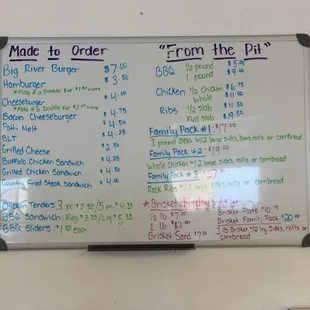 Made to Order
Big River Burger $7.00
Hamburger $3.50
*Make it a Double for $1.50 more
Cheeseburger $4.00
*Make it a Double for
Bacon Cheeseburger $4.75
Patti Melt $4.50
BLT
Grilled Cheese $2.25
Buffalo Chicken Sandwich $4.50
Grilled Chicken Sandwich
Country Fried Steak Sandwich $4.00
Chicken Tenders 3 pc 5 pc
BBQ Sandwich: Reg. Lrg
BBQ Sliders: each
"From the Pit"
BBQ 1/2 pound
1 pound $9.00
Chicken 1/2 chicken $6.75
whole $11.00
Ribs 1/2 slab
Full slab
Family Pack #1: $17.00
1 pound BBQ w/2 large sides, buns, rolls or cornbread
Family Pack #2:
whole chicken w/2 large sides, rolls or cornbread
Family Pack #3:
Rack Ribs large sides, rolls or cornbread
*Brisket
1/2 lb $7.00
1 lb
Brisket Sand
Brisket Plate
Brisket Family Pack $20.00
1 lb Brisket w/2 lrg. sides, rolls or
cornbread